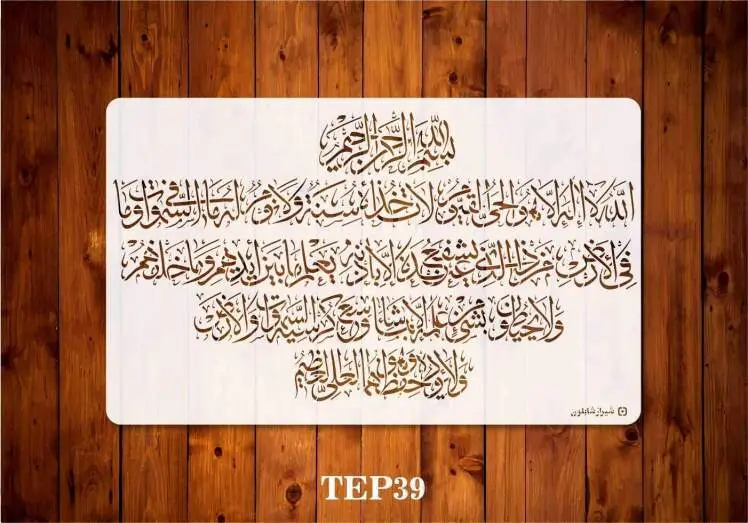 بسم الله الرحمن الرحيم
الله لا إله إلا هو الحي القيوم لا تأخذه سنة ولا نوم له ما في السموات وما
في الأرض من ذا الذي يشفع عنده إلا بإذنه يعلم ما بين أيديهم وما خلفهم
ولا يحيطون بشيء من علمه إلا بما شاء وسع كرسيه السموات والأرض
ولا يؤده حفظهما وهو العلي العظيم
شیراز شابلون
TEP39